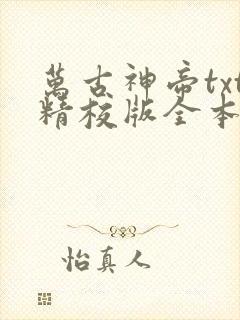 萬古神帝txt
精校版全本
怡真人